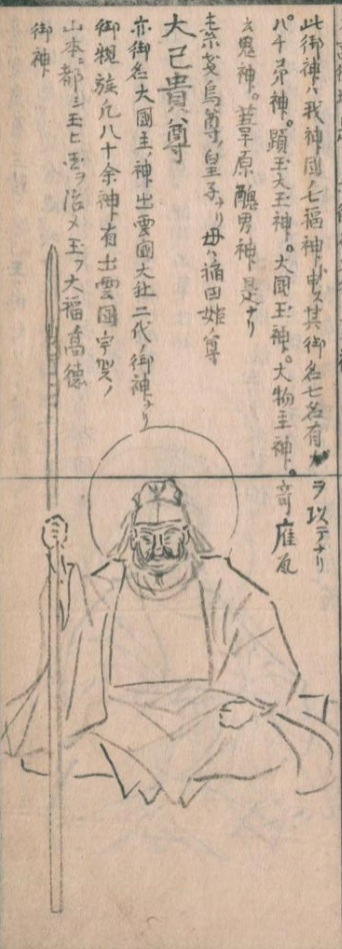 此御神ハ我神國ノ七福神ト申ス其御名七名有ヲ以テナリ
八千矛神。顕玉大玉神。大國玉神。大物主神。
大鬼神。葦草原醜男神是ナリ
素戔烏尊ノ皇子ナリ母ハ稲田姫尊
大己貴尊
亦御名大國主ノ神出雲國大社二代ノ御神ナリ
御親族凡八十余神有出雲國宇賀ノ
山本ニ都シ玉ヒ世ヲ治メ玉フ大福高徳
御神